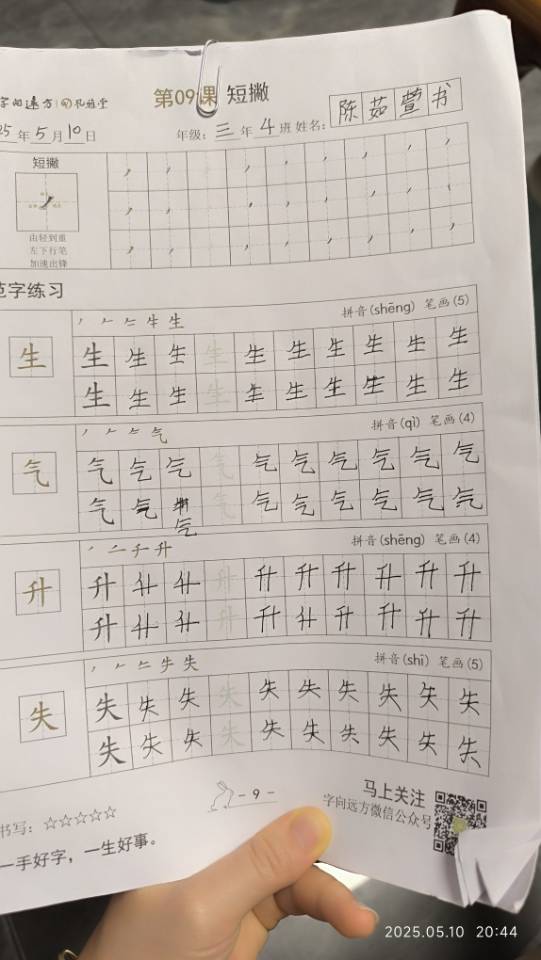 字向远方
第09课 短撇
25年5月10日 年级：三年4班 姓名：陈茹萱书
短撇
由轻到重
左下行笔
加速出锋
范字练习
拼音(shēng) 笔画(5)
生 生 生 生 生 生 生 生 生 生 生
生 生 生 生 生 生 生 生 生 生
拼音(qì) 笔画(4)
气 气 气 气 气 气 气 气 气 气 气
气 气 气 气 气 气 气 气 气 气
拼音(shēng) 笔画(4)
升 升 升 升 升 升 升 升 升 升 升
升 升 升 升 升 升 升 升 升 升
拼音(shī) 笔画(5)
失 失 失 失 失 失 失 失 失 失 失
失 失 失 失 失 失 失 失 失 失
书写：☆☆☆☆☆
- 9 -
马上关注
字向远方微信公众号
一手好字，一生好事。
2025.05.10 20:44